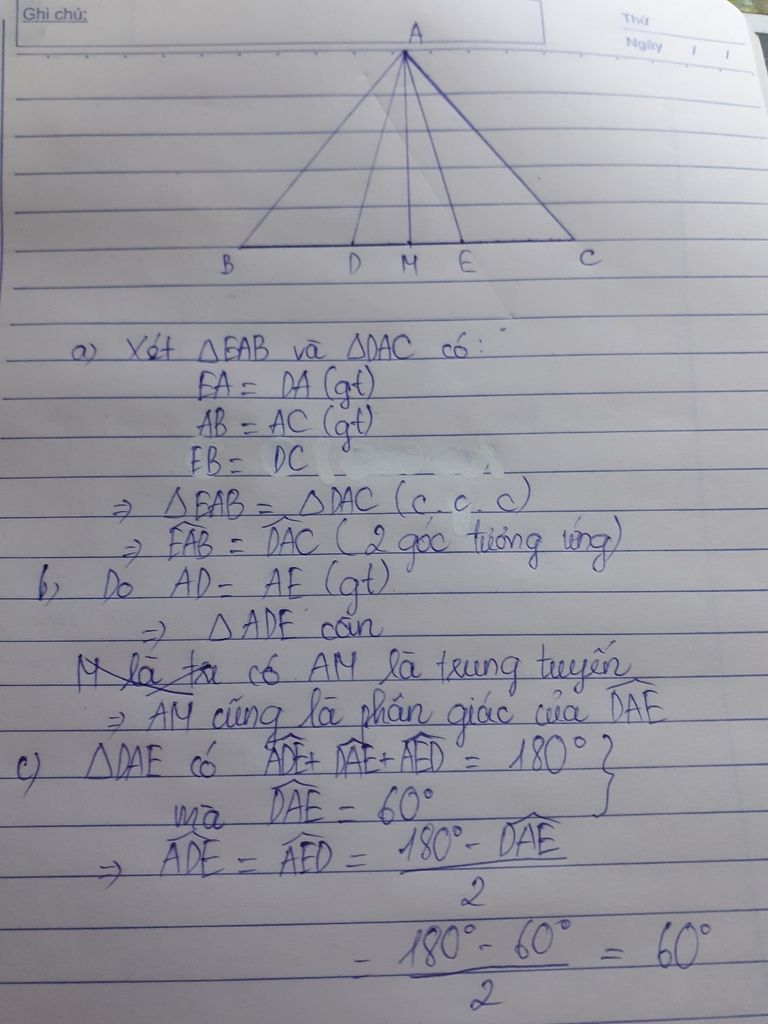 Ghi chú:
Thứ
Ngày / /
A
B D M E C
a) Xét △EAB và △DAC có:
EA = DA (gt)
AB = AC (gt)
EB = DC
⇒ △EAB = △DAC (c.c.c)
⇒ \widehat{EAB} = \widehat{DAC} (2 góc tương ứng)
b, Do AD = AE (gt)
⇒ △ADE cân
M là tr có AM là trung tuyến
⇒ AM cũng là phân giác của \widehat{DAE}
c) △DAE có \widehat{ADE} + \widehat{DAE} + \widehat{AED} = 180° }
mà \widehat{DAE} = 60°
⇒ \widehat{ADE} = \widehat{AED} = \frac{180° - \widehat{DAE}}{2}
= \frac{180° - 60°}{2} = 60°